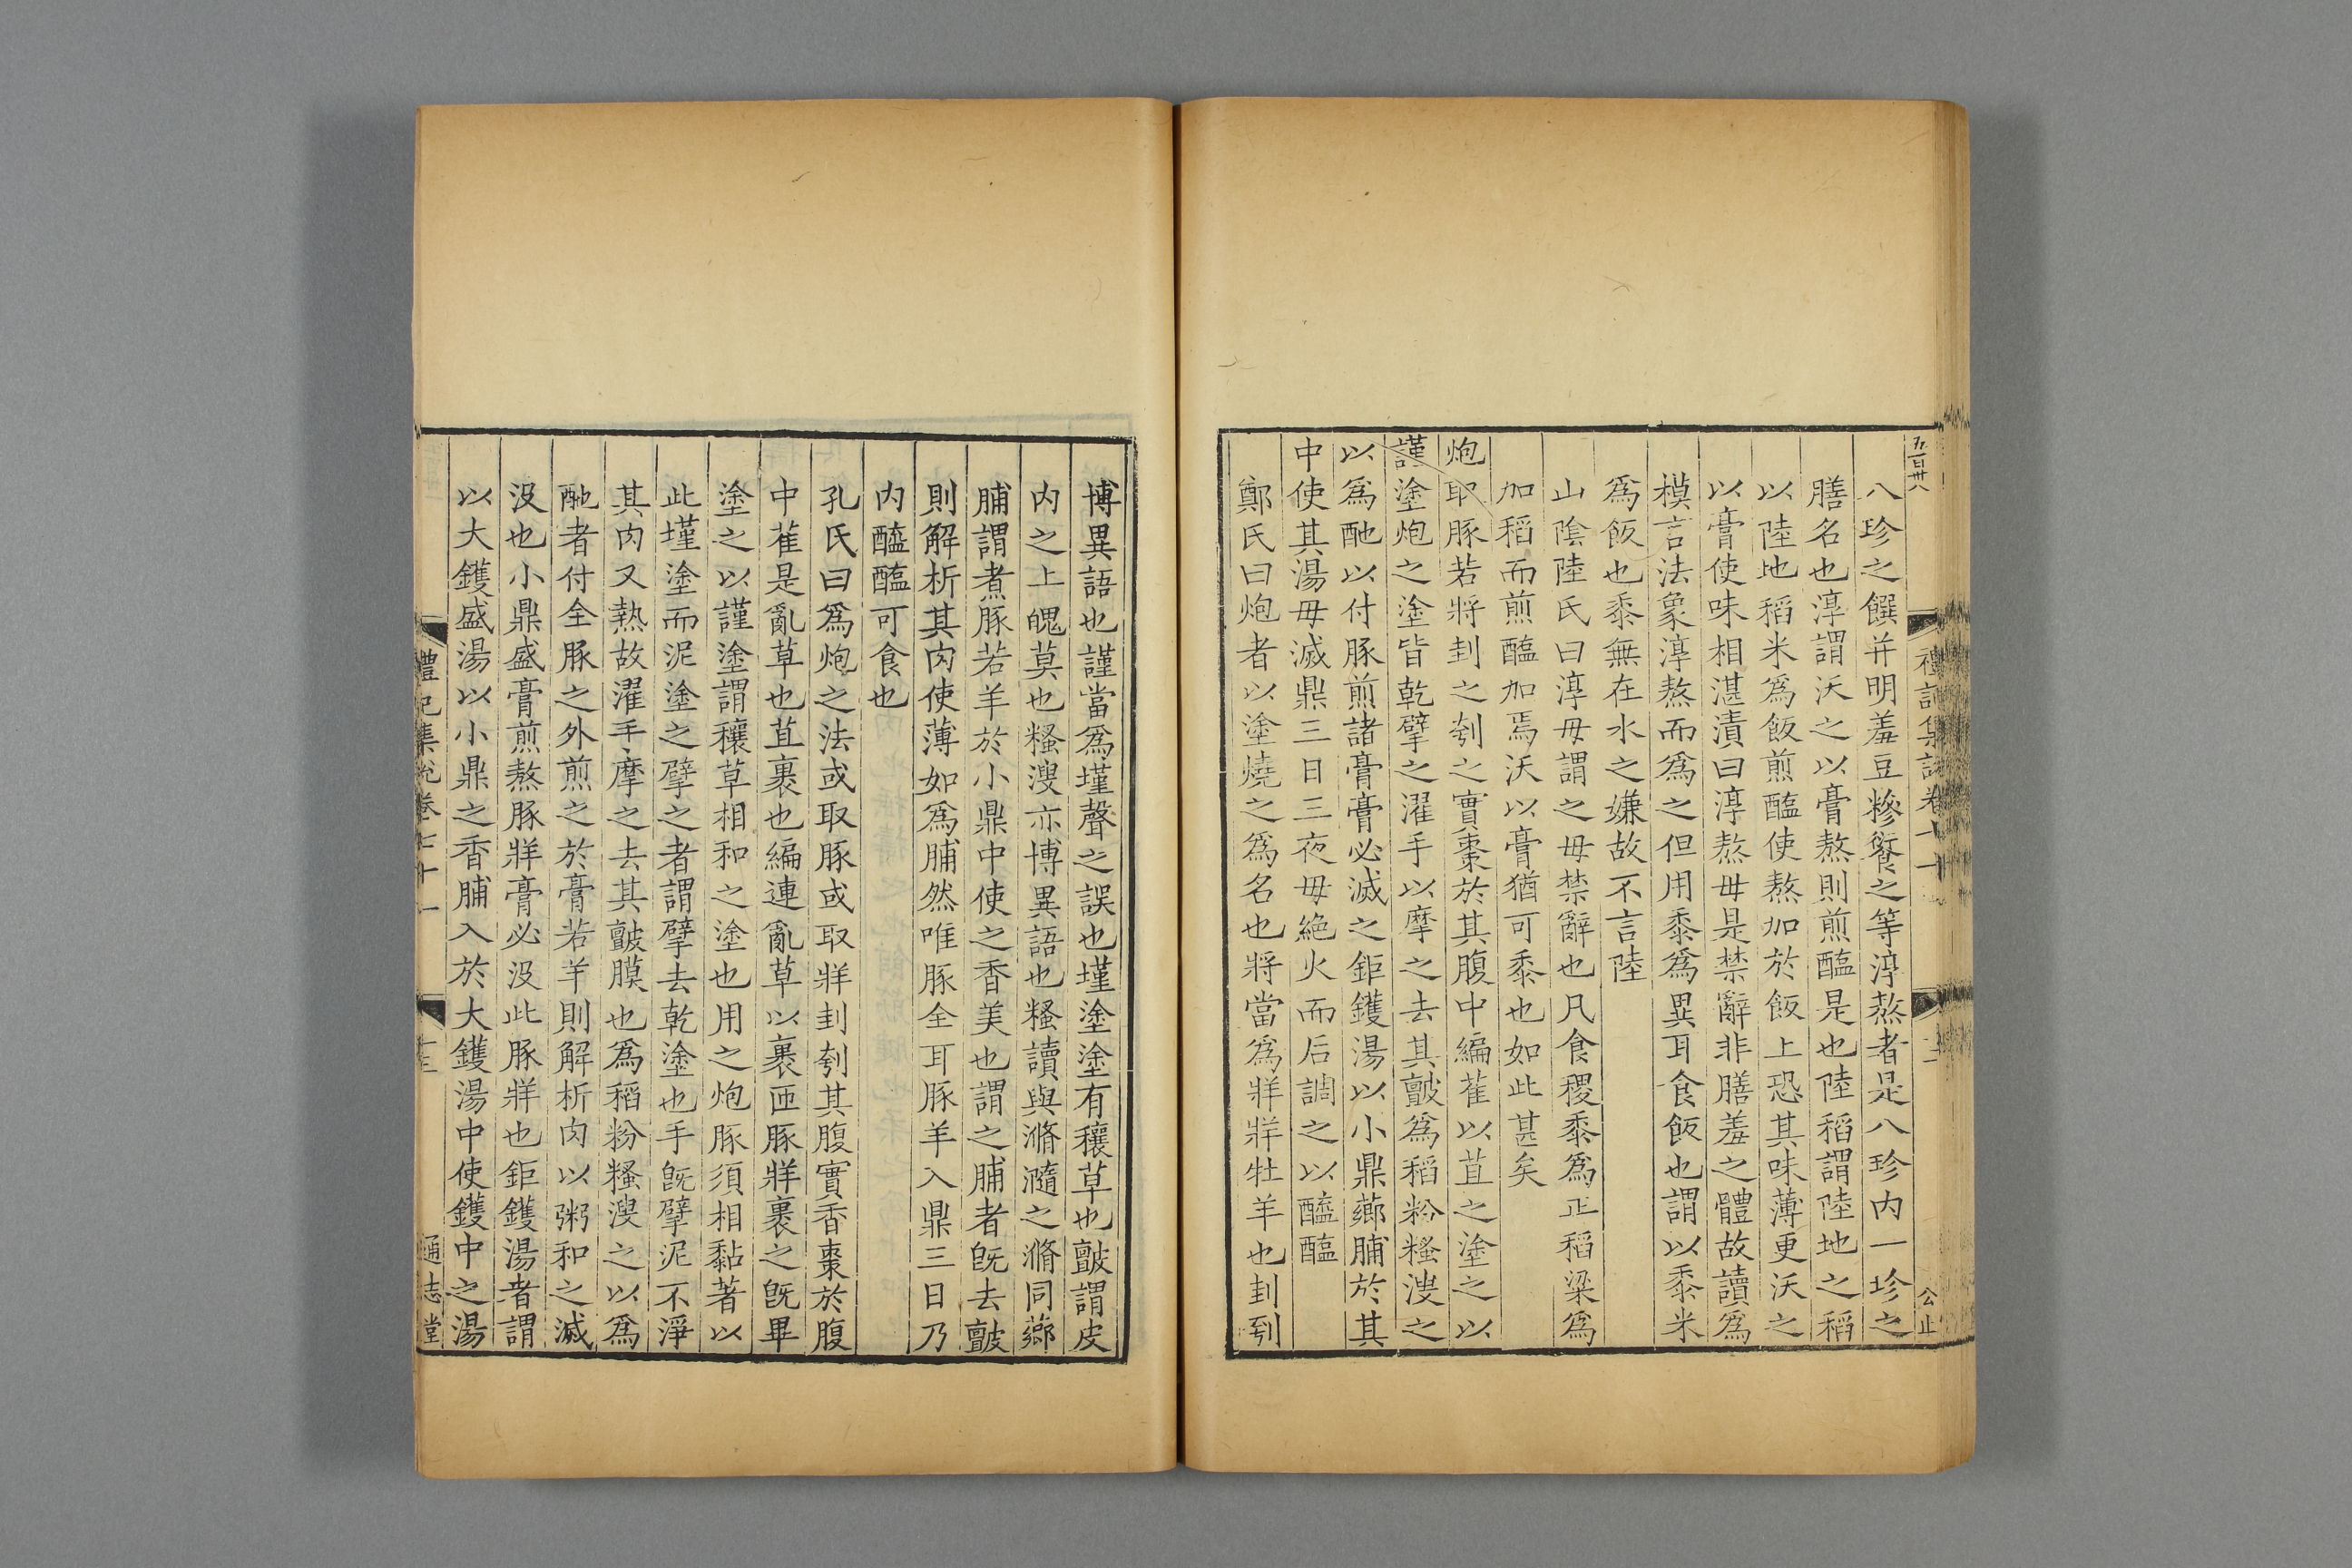 五百卅八
八珍之饌并明羞豆糝餰之等淳熬者是八珍内一珍之
膳名也淳謂沃之以膏熬則煎醢是也陸稻謂陸地之稻
以陸地稻米爲飯煎醢使熬加於飯上恐其味薄更沃之
以膏使味相湛漬曰淳熬毋是禁辭非膳羞之體故讀爲
模言法象淳熬而爲之但用黍爲異耳食飯也謂以黍米
爲飯也黍無在水之嫌故不言陸
山隂陸氏曰淳毋謂之毋禁辭也凡食稷黍爲正稻梁爲
加稻而煎醢加焉沃以膏猶可黍也如此甚矣
炮取豚若將刲之刳之實棗於其腹中編萑以苴之塗之以
謹塗炮之塗皆乾擘之濯手以摩之去其皽爲稻粉糔溲之
以爲酏以付豚煎諸膏膏必滅之鉅鑊湯以小鼎薌脯於其
中使其湯毋滅鼎三日三夜毋絶火而后調之以醯醢
鄭氏曰炮者以塗燒之爲名也將當爲牂牂牡羊也刲刳
公止
博異語也謹當爲墐聲之誤也墐塗塗有穰草也皽謂皮
内之上魄莫也糔溲亦博異語也糔讀與滫瀡之滫同薌
脯謂煮豚若羊於小鼎中使之香美也謂之脯者既去皽
則解析其肉使薄如爲脯然唯豚全耳豚羊入鼎三日乃
内醯醢可食也
孔氏曰爲炮之法或取豚或取牂刲刳其腹實香棗於腹
中萑是亂草也苴裹也編連亂草以裹匝豚牂裹之既畢
塗之以謹塗謂穰草相和之塗也用之炮豚須相黏著以
此墐塗而泥塗之擘之者謂擘去乾塗也手既擘泥不淨
其肉又熱故濯手摩之去其皽膜也爲稻粉糔溲之以爲
酏者付全豚之外煎之於膏若羊則解析肉以粥和之滅
没也小鼎盛膏煎熬豚牂膏必没此豚牂也鉅鑊湯者謂
以大鑊盛湯以小鼎之香脯入於大鑊湯中使鑊中之湯
禮記集說卷七十一
通志堂